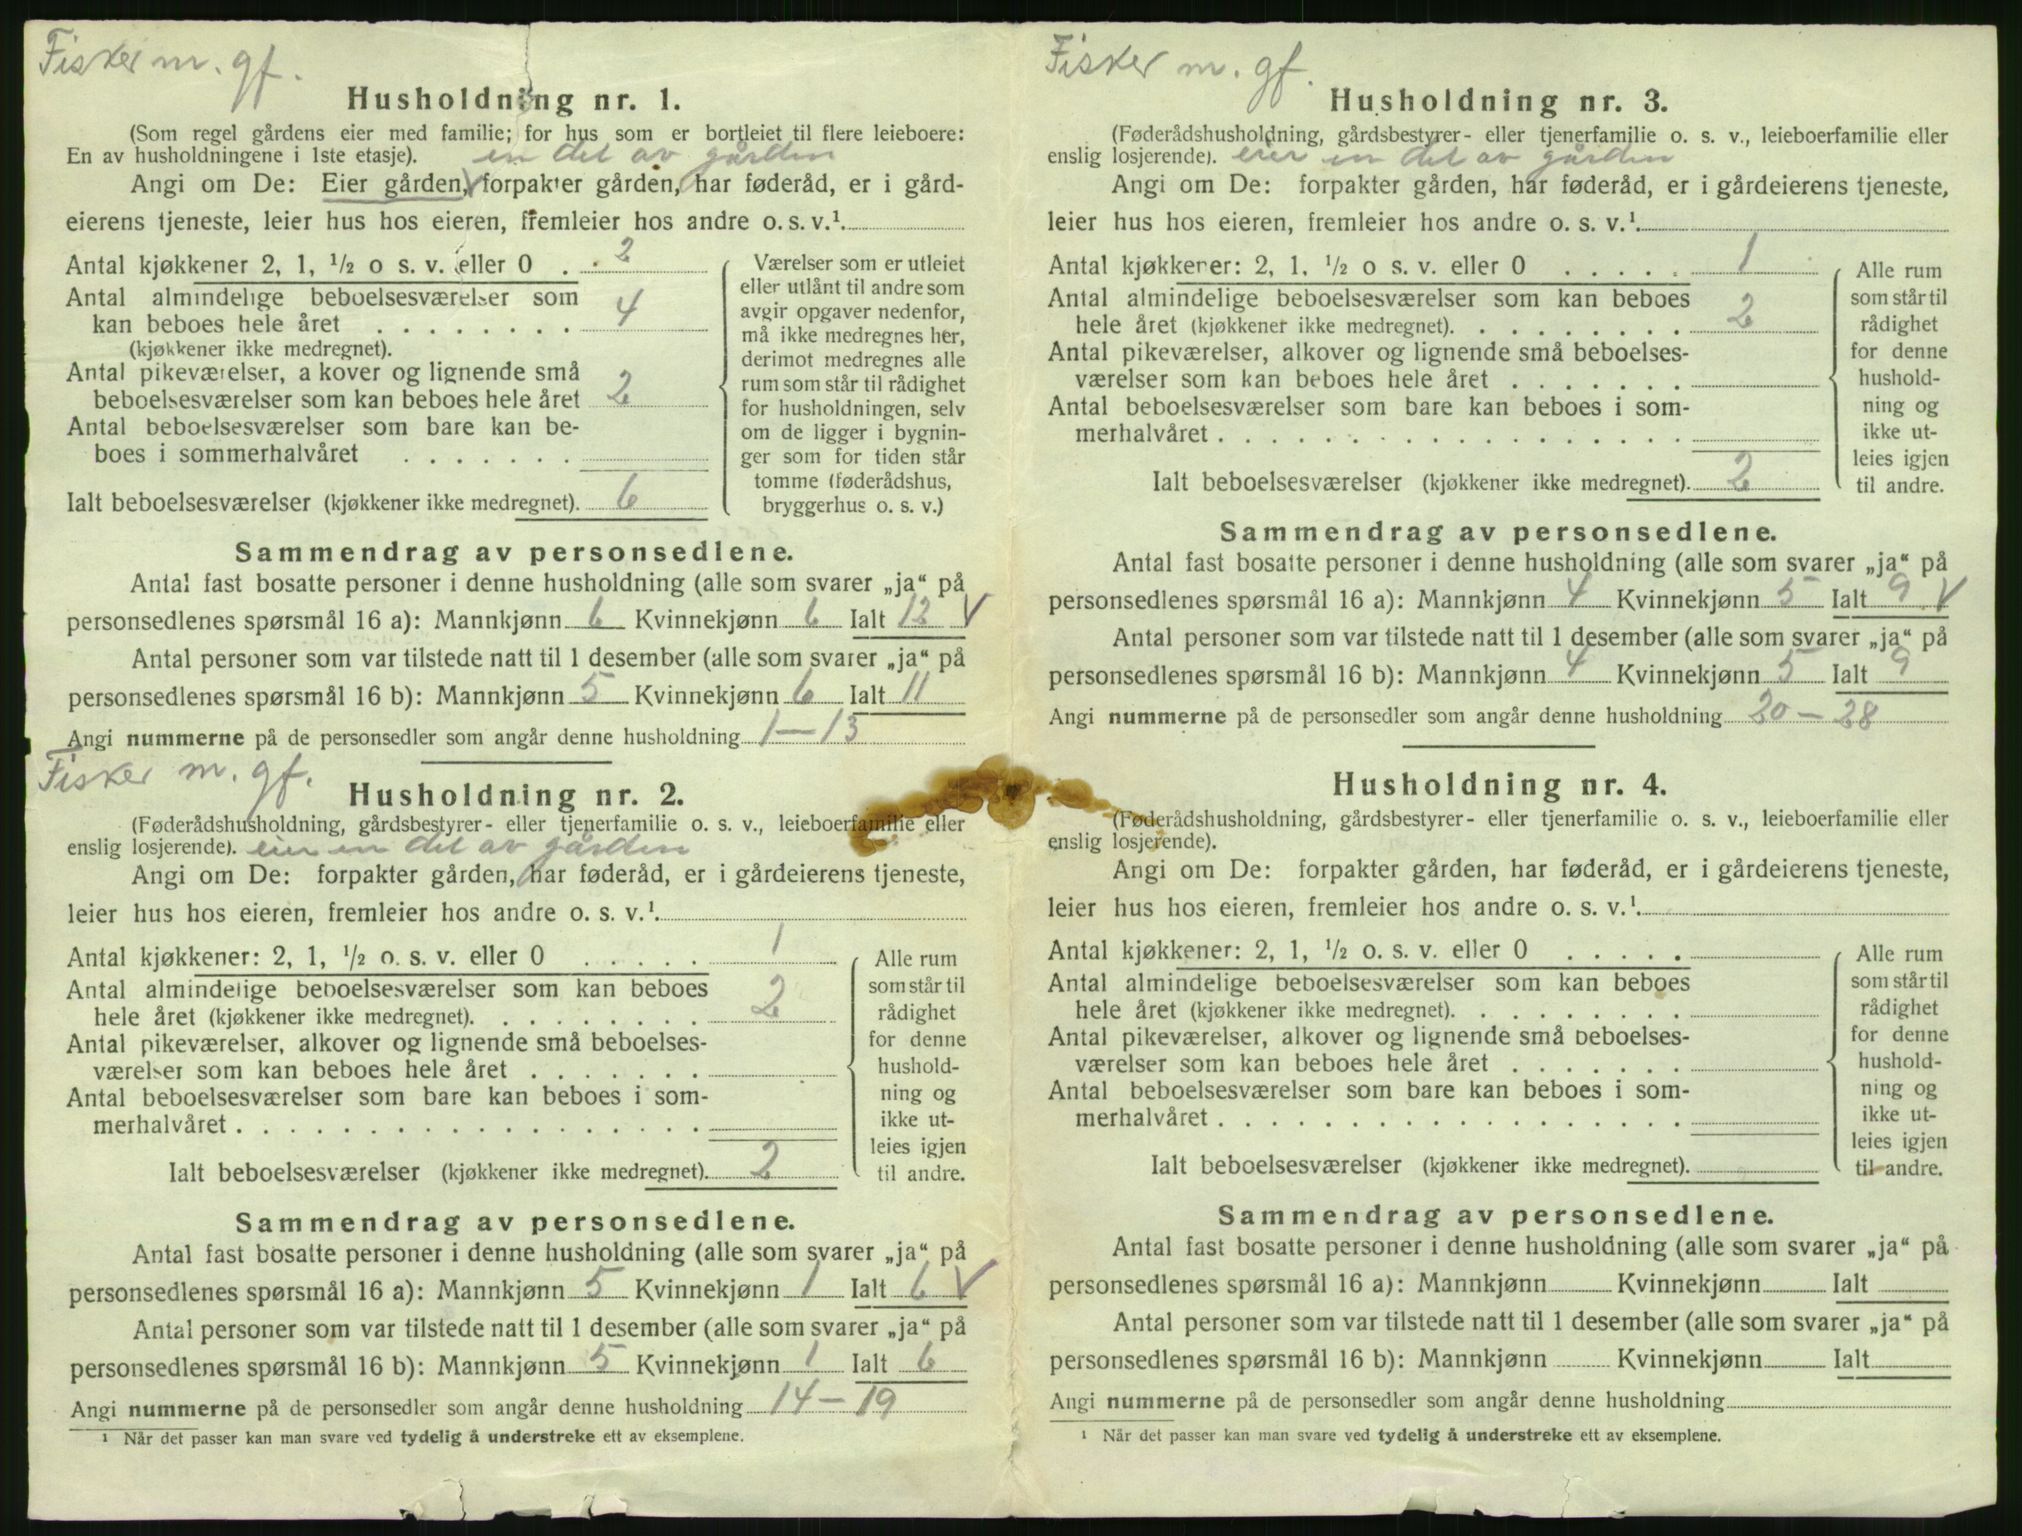 Fisker m. gf.
Husholdning nr. 1.
(Som regel gårdens eier med familie; for hus som er bortleiet til flere leieboere:
En av husholdningene i 1ste etasje). en del av gården
Angi om De: Eier gården, forpakter gården, har føderåd, er i gård-
eierens tjeneste, leier hus hos eieren, fremleier hos andre o. s. v.¹
Antal kjøkkener 2, 1, ½ o s. v. eller 0 . . 2
Antal almindelige beboelsesværelser som
kan beboes hele året . . . . . . . . 4
(kjøkkener ikke medregnet).
Antal pikeværelser, a kover og lignende små
beboelsesværelser som kan beboes hele året 2
Antal beboelsesværelser som bare kan be-
boes i sommerhalvåret . . . . . . .
Ialt beboelsesværelser (kjøkkener ikke medregnet). 6
Værelser som er utleiet
eller utlånt til andre som
avgir opgaver nedenfor,
må ikke medregnes her,
derimot medregnes alle
rum som står til rådighet
for husholdningen, selv
om de ligger i bygnin-
ger som for tiden står
tomme (føderådshus,
bryggerhus o. s. v.)
Sammendrag av personsedlene.
Antal fast bosatte personer i denne husholdning (alle som svarer „ja“ på
personsedlenes spørsmål 16 a): Mannkjønn 6 Kvinnekjønn 6 Ialt 12 V
Antal personer som var tilstede natt til 1 desember (alle som svarer „ja“ på
personsedlenes spørsmål 16 b): Mannkjønn 5 Kvinnekjønn 6 Ialt 11
Angi nummerne på de personsedler som angår denne husholdning 1 — 13
Fisker m. gf.
Husholdning nr. 2.
(Føderådshusholdning, gårdsbestyrer- eller tjenerfamilie o. s. v., leieboerfamilie eller
enslig losjerende). eier en del av gården
Angi om De: forpakter gården, har føderåd, er i gårdeierens tjeneste,
leier hus hos eieren, fremleier hos andre o. s. v.¹
Antal kjøkkener: 2, 1, ½ o. s. v. eller 0 . . . . . 1
Antal almindelige beboelsesværelser som kan beboes
hele året (kjøkkener ikke medregnet). . . . . . . . . 2
Antal pikeværelser, alkover og lignende små beboelses-
værelser som kan beboes hele året . . . . . . .
Antal beboelsesværelser som bare kan beboes i som-
merhalvåret . . . . . . . . . . . . . . . . . .
Ialt beboelsesværelser (kjøkkener ikke medregnet). 2
Alle rum
som står til
rådighet
for denne
hushold-
ning og
ikke ut-
leies igjen
til andre.
Sammendrag av personsedlene.
Antal fast bosatte personer i denne husholdning (alle som svarer „ja“ på
personsedlenes spørsmål 16 a): Mannkjønn 5 Kvinnekjønn 1 Ialt 6 V
Antal personer som var tilstede natt til 1 desember (alle som svarer „ja“ på
personsedlenes spørsmål 16 b): Mannkjønn 5 Kvinnekjønn 1 Ialt 6
Angi nummerne på de personsedler som angår denne husholdning 14 — 19
¹ Når det passer kan man svare ved tydelig å understreke ett av eksemplene.
Fisker m. gf.
Husholdning nr. 3.
(Føderådshusholdning, gårdsbestyrer- eller tjenerfamilie o. s. v., leieboerfamilie eller
enslig losjerende). eier en del av gården
Angi om De: forpakter gården, har føderåd, er i gårdeierens tjeneste,
leier hus hos eieren, fremleier hos andre o. s. v.¹
Antal kjøkkener: 2, 1, ½ o s. v. eller 0 . . . . . 1
Antal almindelige beboelsesværelser som kan beboes
hele året (kjøkkener ikke medregnet). . . . . . . . . 2
Antal pikeværelser, alkover og lignende små beboelses-
værelser som kan beboes hele året . . . . . . .
Antal beboelsesværelser som bare kan beboes i som-
merhalvåret . . . . . . . . . . . . . . . . . .
Ialt beboelsesværelser (kjøkkener ikke medregnet). 2
Alle rum
som står til
rådighet
for denne
hushold-
ning og
ikke ut-
leies igjen
til andre.
Sammendrag av personsedlene.
Antal fast bosatte personer i denne husholdning (alle som svarer „ja“ på
personsedlenes spørsmål 16 a): Mannkjønn 4 Kvinnekjønn 5 Ialt 9 V
Antal personer som var tilstede natt til 1 desember (alle som svarer „ja“ på
personsedlenes spørsmål 16 b): Mannkjønn 4 Kvinnekjønn 5 Ialt 9
Angi nummerne på de personsedler som angår denne husholdning 20 — 28
Husholdning nr. 4.
(Føderådshusholdning, gårdsbestyrer- eller tjenerfamilie o. s. v., leieboerfamilie eller
enslig losjerende).
Angi om De: forpakter gården, har føderåd, er i gårdeierens tjeneste,
leier hus hos eieren, fremleier hos andre o. s. v.¹
Antal kjøkkener: 2, 1, ½ o. s. v. eller 0 . . . . .
Antal almindelige beboelsesværelser som kan beboes
hele året (kjøkkener ikke medregnet). . . . . . . . .
Antal pikeværelser, alkover og lignende små beboelses-
værelser som kan beboes hele året . . . . . . .
Antal beboelsesværelser som bare kan beboes i som-
merhalvåret . . . . . . . . . . . . . . . . . .
Ialt beboelsesværelser (kjøkkener ikke medregnet).
Alle rum
som står til
rådighet
for denne
hushold-
ning og
ikke ut-
leies igjen
til andre.
Sammendrag av personsedlene.
Antal fast bosatte personer i denne husholdning (alle som svarer „ja“ på
personsedlenes spørsmål 16 a): Mannkjønn Kvinnekjønn Ialt
Antal personer som var tilstede natt til 1 desember (alle som svarer „ja“ på
personsedlenes spørsmål 16 b): Mannkjønn Kvinnekjønn Ialt
Angi nummerne på de personsedler som angår denne husholdning
¹ Når det passer kan man svare ved tydelig å understreke ett av eksemplene.